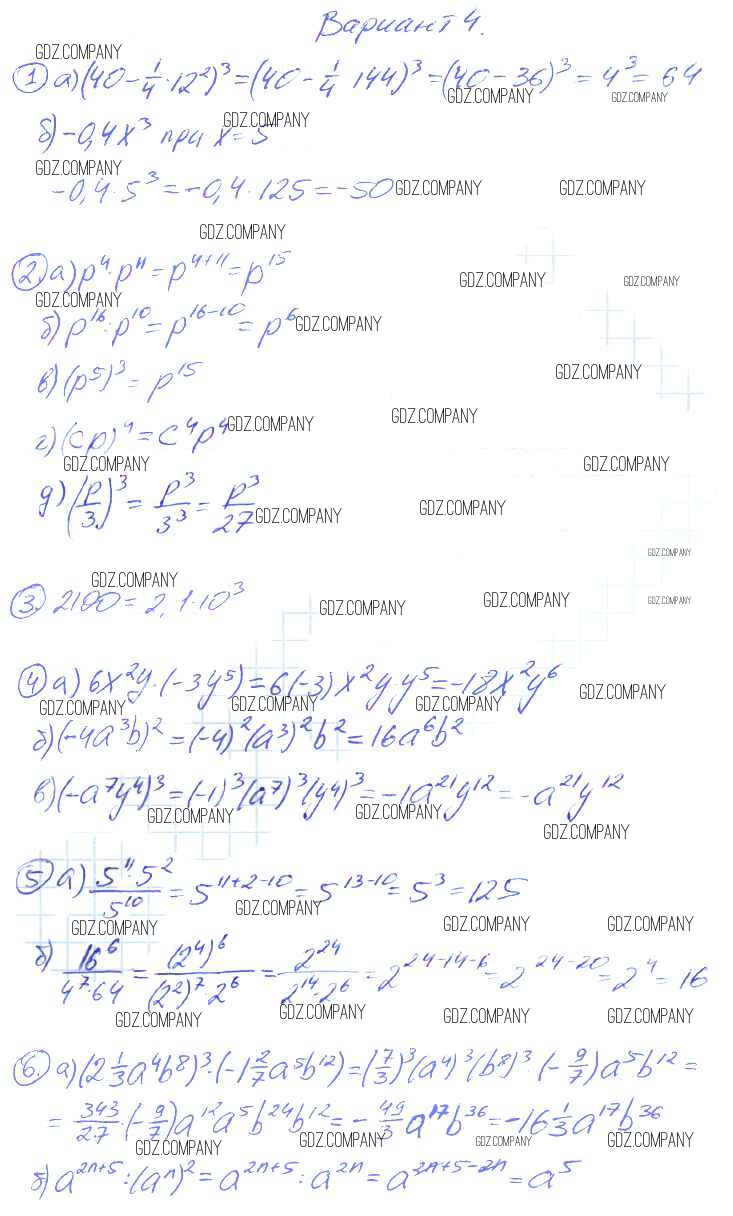 Вариант 4.
GDZ.COMPANY
① а) (40 - 1/4 · 12²)³ = (40 - 1/4 144)³ = (40 - 36)³ = 4³ = 64
GDZ.COMPANY GDZ.COMPANY
GDZ.COMPANY
б) -0,4x³ при x = 5
GDZ.COMPANY
-0,4 · 5³ = -0,4 · 125 = -50 GDZ.COMPANY GDZ.COMPANY
GDZ.COMPANY
② а) p⁴ · p¹¹ = p⁴⁺¹¹ = p¹⁵
GDZ.COMPANY GDZ.COMPANY
GDZ.COMPANY
б) p¹⁶ : p¹⁰ = p¹⁶⁻¹⁰ = p⁶ GDZ.COMPANY
GDZ.COMPANY
в) (p⁵)³ = p¹⁵
GDZ.COMPANY GDZ.COMPANY
г) (cp)⁴ = c⁴p⁴
GDZ.COMPANY GDZ.COMPANY
д) (p/3)³ = p³/3³ = p³/27
GDZ.COMPANY GDZ.COMPANY
GDZ.COMPANY
GDZ.COMPANY
③ 2100 = 2,1 · 10³
GDZ.COMPANY GDZ.COMPANY GDZ.COMPANY
④ а) 6x²y · (-3y⁵) = 6(-3) x²y y⁵ = -18x²y⁶
GDZ.COMPANY
GDZ.COMPANY GDZ.COMPANY GDZ.COMPANY
б) (-4a³b)² = (-4)²(a³)²b² = 16a⁶b²
в) (-a⁷y⁴)³ = (-1)³(a⁷)³(y⁴)³ = -1a²¹y¹² = -a²¹y¹²
GDZ.COMPANY GDZ.COMPANY
GDZ.COMPANY
⑤ а) 5¹¹ · 5²/5¹⁰ = 5¹¹⁺²⁻¹⁰ = 5¹³⁻¹⁰ = 5³ = 125
GDZ.COMPANY
GDZ.COMPANY GDZ.COMPANY GDZ.COMPANY
б) 16⁶/4⁷·64 = (2⁴)⁶/(2²)⁷ 2⁶ = 2²⁴/2¹⁴·2⁶ = 2²⁴⁻¹⁴⁻⁶ = 2²⁴⁻²⁰ = 2⁴ = 16
GDZ.COMPANY GDZ.COMPANY GDZ.COMPANY GDZ.COMPANY
⑥ а) (2 1/3 a⁴b⁸)³ · (-1 2/7 a⁵b¹²) = (7/3)³(a⁴)³(b⁸)³ · (-9/7)a⁵b¹² =
= 343/27 · (-9/7)a¹²a⁵b²⁴b¹² = -49/3 a¹⁷b³⁶ = -16 1/3 a¹⁷b³⁶
GDZ.COMPANY GDZ.COMPANY GDZ.COMPANY GDZ.COMPANY
б) a²ⁿ⁺⁵ : (aⁿ)² = a²ⁿ⁺⁵ : a²ⁿ = a²ⁿ⁺⁵⁻²ⁿ = a⁵